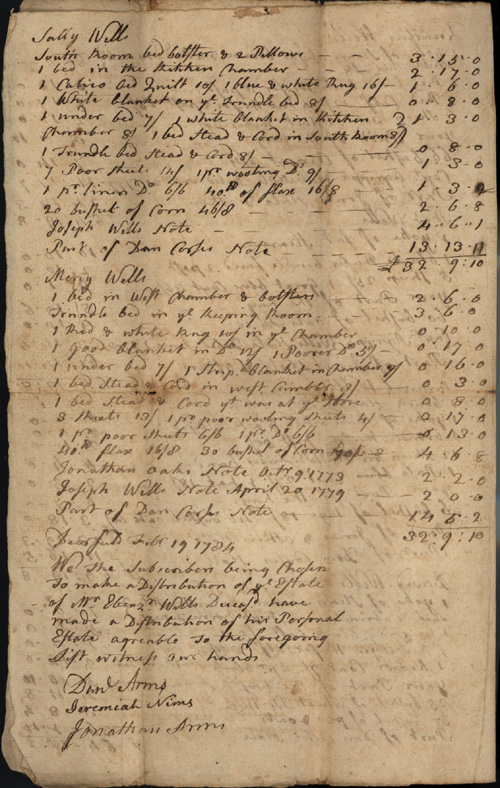 Sally Wells
South Room bed bolster & 2 Pillows — 3 · 15 · 0
1 bed in the Kitchen Chamber — 2 · 17 · 0
1 Calico bed Quilt 10/ 1 blue & white Rug 16/ — 1 · 6 · 0
1 White blanket on ye Trundle bed 8/ — 0 · 8 · 0
1 under bed 7/ 1 white Blanket in Kitchen } 1 · 3 · 0
Chamber 8/ 1 bed Stead & Cord in South Room 8/
1 Trundle bed Stead & Cord 8/ — 0 · 8 · 0
7 Poor Sheets 14/ 1 pr wooling Do 9/ — 1 · 3 · 0
1 pr linen Do 6/6 40 lb of flax 16/8 — 1 · 3 · 2
20 bushel of Corn 46/8 — 2 · 6 · 8
Joseph Wells Note — 4 · 6 · 1
Part of Dan Corps Note — 13 · 13 · 11
£ 32 · 9 · 10
Mercy Wells
1 bed in West Chamber & bolsters — 2 · 6 · 0
Trundle bed in ye Keeping Room — 3 · 6 · 0
1 Red & white Rug 10/ in ye Chamber — 0 · 10 · 0
1 Good blanket in Do 12/ 1 Poorer Do 5/ — 0 · 17 · 0
1 under bed 7/ 1 Strip. Blanket in Chamber 9/ — 0 16 · 0
1 bed Stead & Cord in west 3/ — 0 · 3 · 0
1 bed Stead & Cord yt was at ye Store — 0 · 8 · 0
3 Sheets 13/ 1 pr poor wooling Sheets 4/ — 0 17 · 0
1 pr poor Sheets 6/6 1 pr Do 6/6 — 0 · 13 · 0
40 lb flax 16/8 30 bushel of Corn — 4 · 6 · 8
Jonathan Oaks Note Octr 9 1773 — 2 · 2 · 0
Joseph Wells Note April 20 1779 — 2 · 0 · 0
Part of Dan Corps Note — 14 · 6 · 2
32 · 9 · 10
Deerfield Febr 19 1784
We the Subscribers being Chosen
to make a Distribution of ye Estate
of Mr Ebenzr Wells Deceasd have
made a Distribution of his Personal
Estate agreable to the foregoing
List witness our hands
Danl Arms
Jeremiah Nims
Jonathan Arms